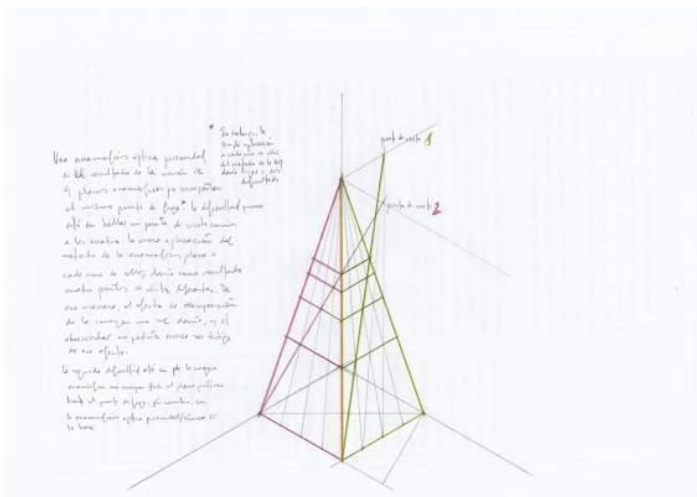 Una anamorfosis óptica piramidal
es el resultado de la unión de
4 planos anamórficos que comparten
el mismo punto de fuga*. la dificultad primera
está en hallar un punto de vista común
a los cuatro. la mera aplicación del
método de la anamorfosis plana a
cada uno de ellos daría como resultado
cuatro puntos de vista diferentes. De
esa manera, el efecto de recomposición
de la imagen no se daría, y el
observador no podría nunca ser testigo
de ese efecto.
la segunda dificultad está en que la imagen
anamórfica no ocupa todo el plano
hasta el punto de fuga, sin embargo, en
la anamorfosis óptica piramidal
la base
* aplicación
a cada uno de ellos
del método de la
daría lugar a dos
dificultades
punto de vista 1
punto de vista 2